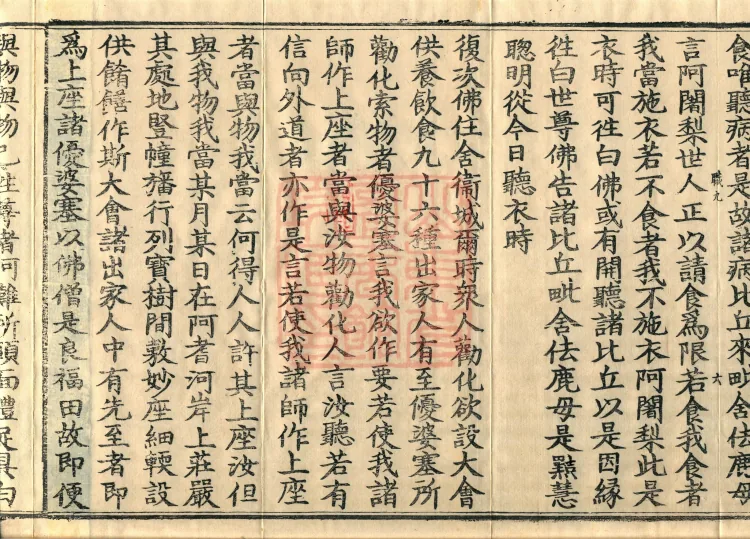 食唯聽病者是故諸病比丘來毗舍佉鹿母
職九
六
言阿闍梨世人正以請食爲限若食我食者
我當施衣若不食者我不施衣阿闍梨此是
衣時可徃白佛或有開聽諸比丘以是因緣
徃白世尊佛告諸比丘毗舍佉鹿母是黠慧
聦明從今日聽衣時
復次佛住舍衛城爾時衆人勸化欲設大會
供養飲食九十六種出家人有至優婆塞所
勸化索物者優婆塞言我欲作要若使我諸
師作上座者當與汝物勸化人言汝聽若有
信向外道者亦作是言若使我諸師作上座
者當與物我當云何得人人許其上座汝但
與我物我當某月某日在阿耆河岸上莊嚴
其處地竪幢旛行列寳樹間敷妙座細輭設
供餚饍作斯大會諸出家人中有先至者即
爲上座諸優婆塞以佛僧是良福田故即便
與物與物已徃尊者阿難所頭面禮足具白